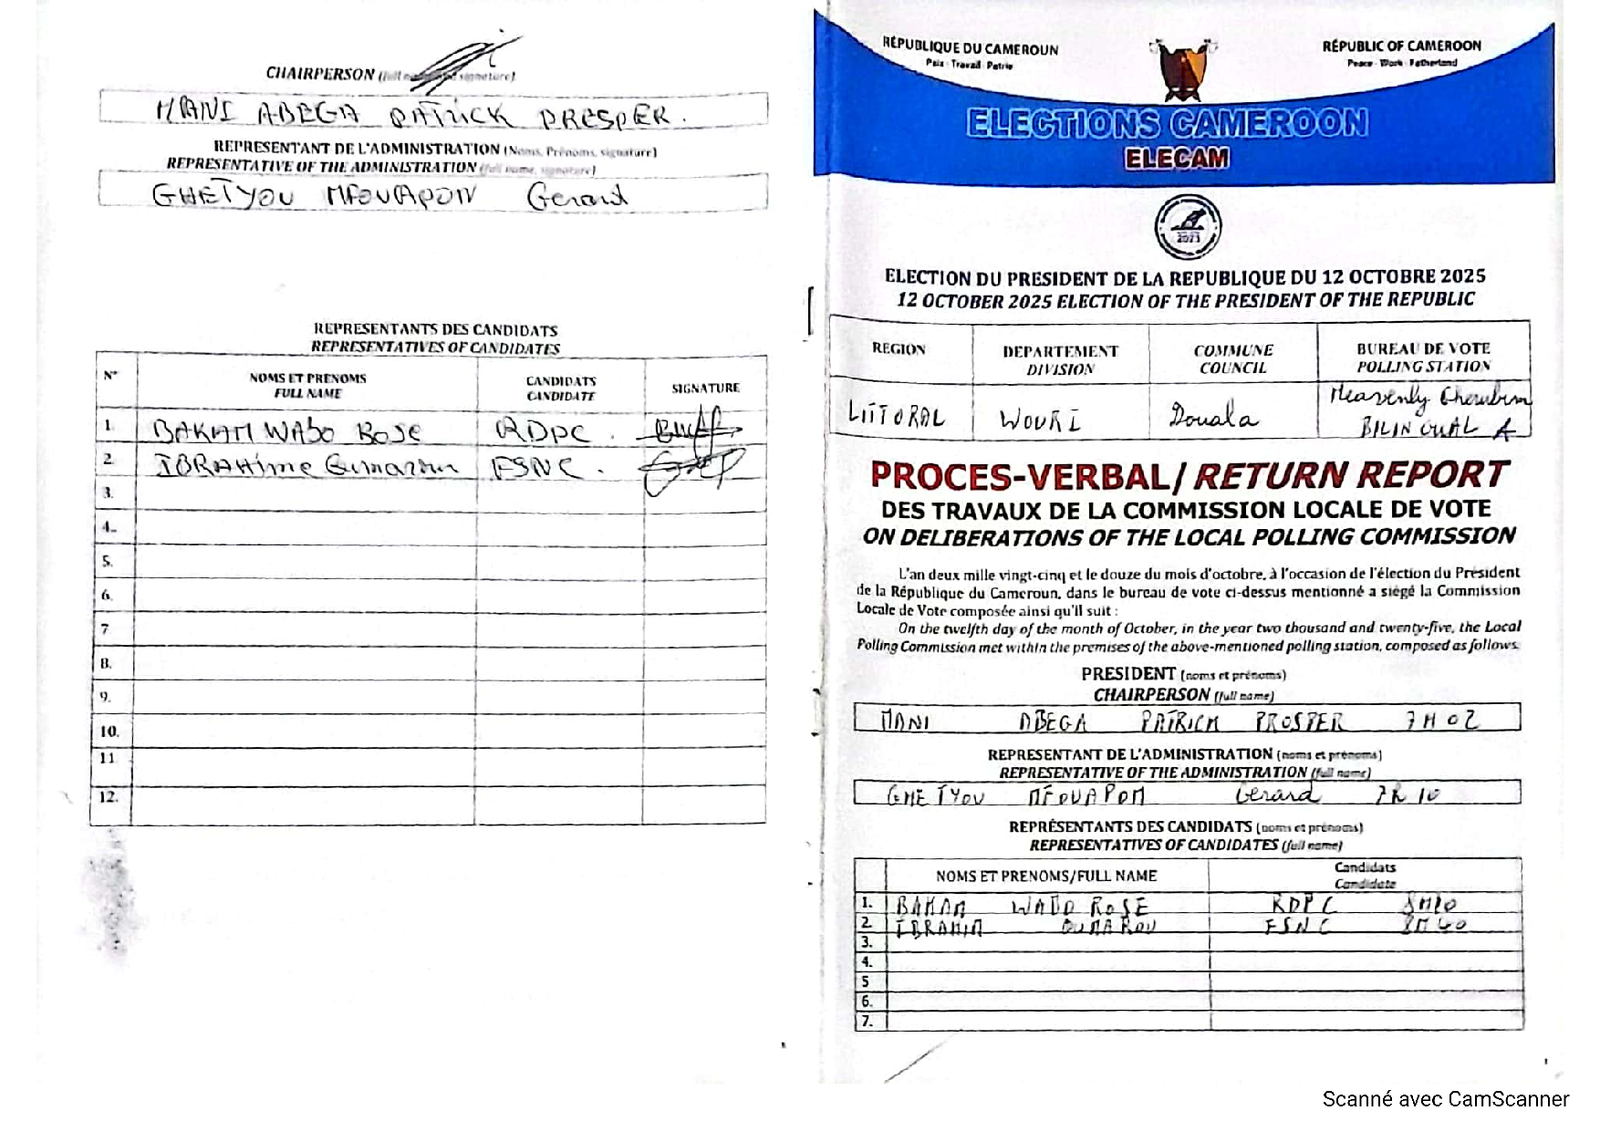 CHAIRPERSON (full name and signature)
MANI ABEGA PATRICK PRESPER.
REPRESENTANT DE L'ADMINISTRATION (Noms, Prénoms, signature)
REPRESENTATIVE OF THE ADMINISTRATION (full name, signature)
GHETYOU MFOUAPON Gerard
REPRESENTANTS DES CANDIDATS
REPRESENTATIVES OF CANDIDATES
N° NOMS ET PRENOMS FULL NAME CANDIDATS CANDIDATE SIGNATURE
1. BAKAM WABO ROSE RDPC.
2. IBRAHime Oumarou FSNC.
3.
4.
5.
6.
7
8.
9.
10.
11
12.
RÉPUBLIQUE DU CAMEROUN
Paix - Travail - Patrie
RÉPUBLIC OF CAMEROON
Peace - Work - Fatherland
ELECTIONS CAMEROON
ELECAM
ELECTION DU PRESIDENT DE LA REPUBLIQUE DU 12 OCTOBRE 2025
12 OCTOBER 2025 ELECTION OF THE PRESIDENT OF THE REPUBLIC
REGION DEPARTEMENT DIVISION COMMUNE COUNCIL BUREAU DE VOTE POLLING STATION
LITTORAL WOURI Douala Heavenly Cherubim BILINGUAL A
PROCES-VERBAL/ RETURN REPORT
DES TRAVAUX DE LA COMMISSION LOCALE DE VOTE
ON DELIBERATIONS OF THE LOCAL POLLING COMMISSION
L'an deux mille vingt-cinq et le douze du mois d'octobre, à l'occasion de l'élection du Président
de la République du Cameroun, dans le bureau de vote ci-dessus mentionné a siégé la Commission
Locale de Vote composée ainsi qu'il suit :
On the twelfth day of the month of October, in the year two thousand and twenty-five, the Local
Polling Commission met within the premises of the above-mentioned polling station, composed as follows.
PRESIDENT (noms et prénoms)
CHAIRPERSON (full name)
MANI ABEGA PATRICK PROSPER 7H02
REPRESENTANT DE L'ADMINISTRATION (noms et prénoms)
REPRESENTATIVE OF THE ADMINISTRATION (full name)
GHETYOU MFOUAPOM Gerard 7h10
REPRÉSENTANTS DES CANDIDATS (noms et prénoms)
REPRESENTATIVES OF CANDIDATES (full name)
NOMS ET PRENOMS/FULL NAME Candidats Candidate
1. BAKAM WABO ROSE RDPC 8h10
2. IBRAHIM OUMAROU FSNC 8h40
3.
4.
5
6.
7.
Scanné avec CamScanner